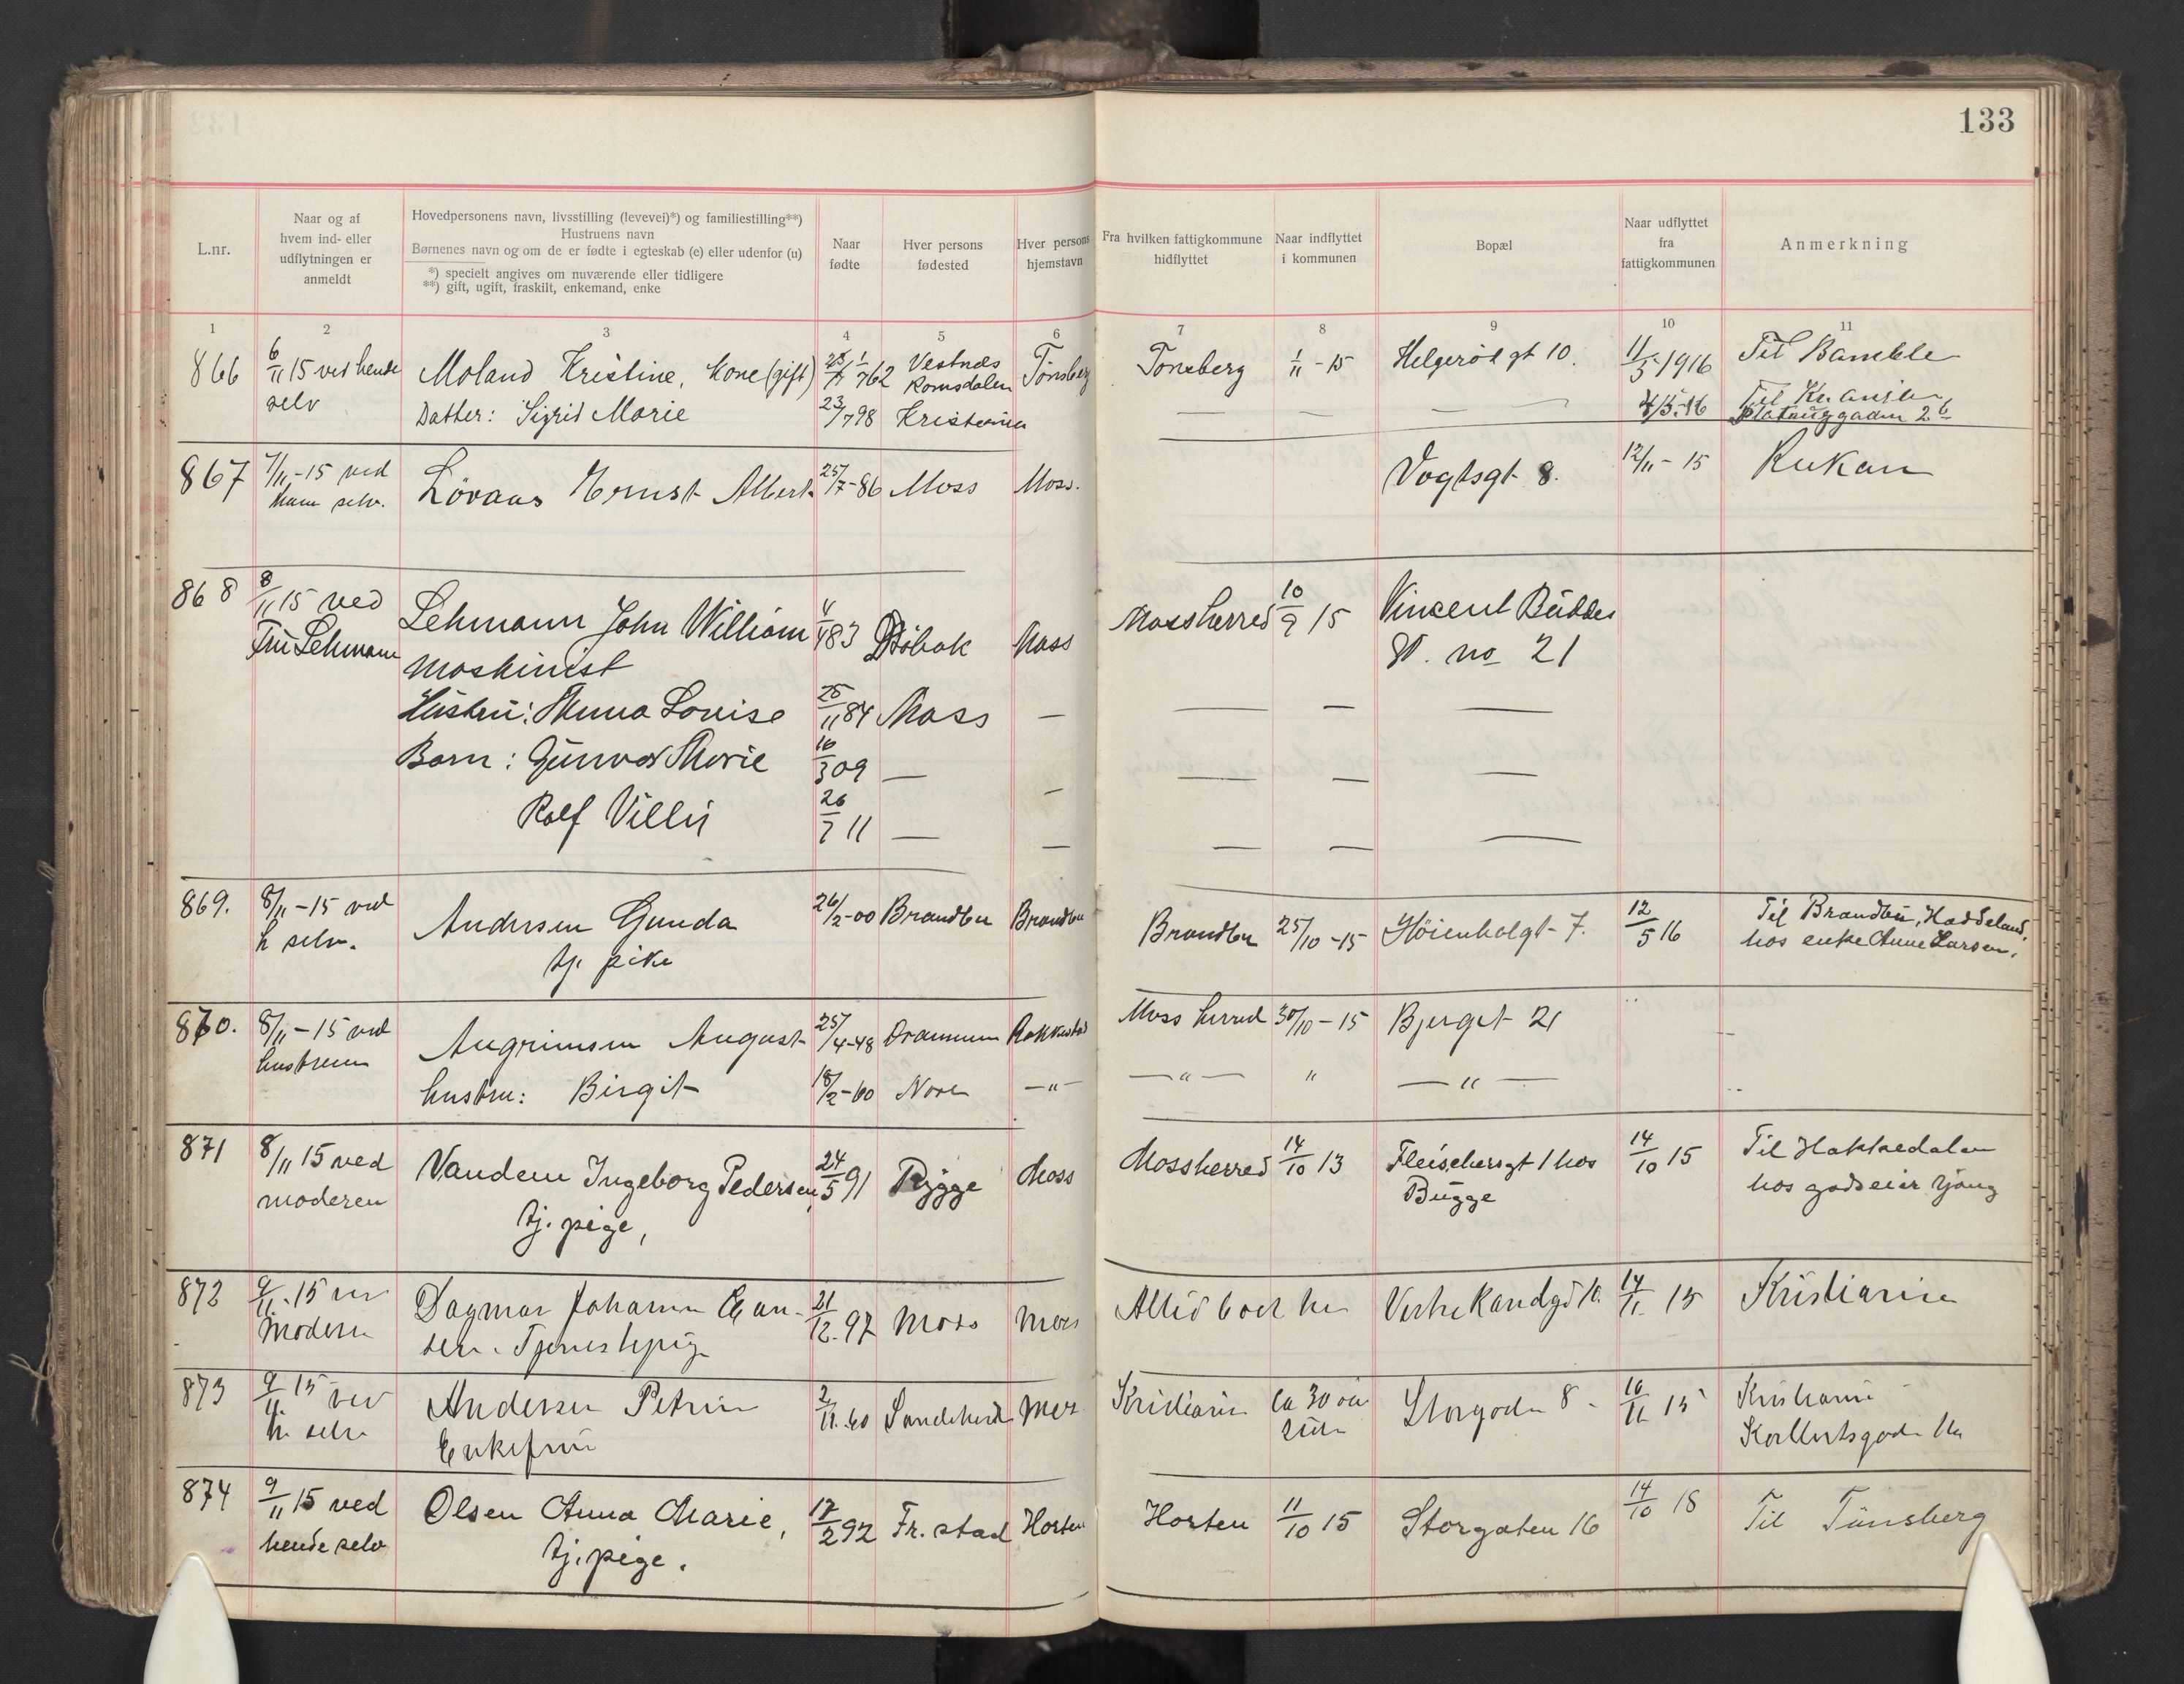 133
L.nr.
Naar og af
hvem ind- eller
udflytningen er
anmeldt
Hovedpersonens navn, livsstilling (levevei)*) og familiestilling**)
Hustruens navn
Børnenes navn og om de er fødte i egteskab (e) eller udenfor (u)
*) specielt angives om nuværende eller tidligere
**) gift, ugift, fraskilt, enkemand, enke
Naar
fødte
Hver persons
fødested
Hver persons
hjemstavn
Fra hvilken fattigkommune
hidflyttet
Naar indflyttet
i kommunen
Bopæl
Naar udflyttet
fra
fattigkommunen
Anmerkning
1 2 3 4 5 6 7 8 9 10 11
866 6/11 15 ved hende Moland Kristine, kone (gift) 62 Vestnæs Tønsberg Tønsberg 1/11-15 Helgerød gt 10. 11/5-1916 Til Bamble
selv Romsdalen
Datter: Sigrid Marie 23/7 98 Kristiania — — — 4/5-16 Til
867 7/11-15 ved Løvaas Ernst Albert 25/7-86 Moss Moss. Vogtsgt 8. 12/11-15 Rukan
ham selv.
868 8/11 15 ved Lehmann John William 83 Drøbak Moss Mossherred 10/9 15 Vincent Buddes
Fru Lehmann Maskinist gt. no 21
Hustru: Anna Lovise 25/11 84 Moss — — — —
Barn: Gunvor Marie 16/3 09 — — — — —
Rolf Villy 26/7 11 — — — — —
869. 8/11-15 ved Andersen Gunda 26/2-00 Brandbu Brandbu Brandbu 25/10-15 Høienholgt 7. 12/5 16 Til Brandbu, Hadeland,
h selv. tj. pike hos enke Anne Larsen.
870. 8/11-15 ved Augrimsen August 25/4-48 Drammen Rakkestad Moss herred 30/10-15 Bjerget 21
hustruen hustru: Birgit 18/2-60 Nore —"— —"— " —"—
871 8/11 15 ved Vandem Ingeborg Pedersen, 24/5 91 Rygge Moss Mossherred 14/10 13 Fleischersgt 1 hos 14/10 15 Til Hakkedalen
moderen tj. pige, Bugge hos godseier
872 9/11-15 ved Dagmar Johanne 21/12-97 Moss Moss Altid boet her 14/11 15 Kristiania
Moderen
873 9/11 15 ved Andersen Petrine 2/11-60 Moss Kristiania ca 30 aar Storgaden 8 - 16/11 15 Kristiania
h. selv Enkefru siden
874 9/11 15 ved Olsen Anna Marie, 17/2 92 Fr. stad Horten Horten 11/10 15 Storgaten 16 14/10 15 Til Tünsberg
hende selv tj. pige.